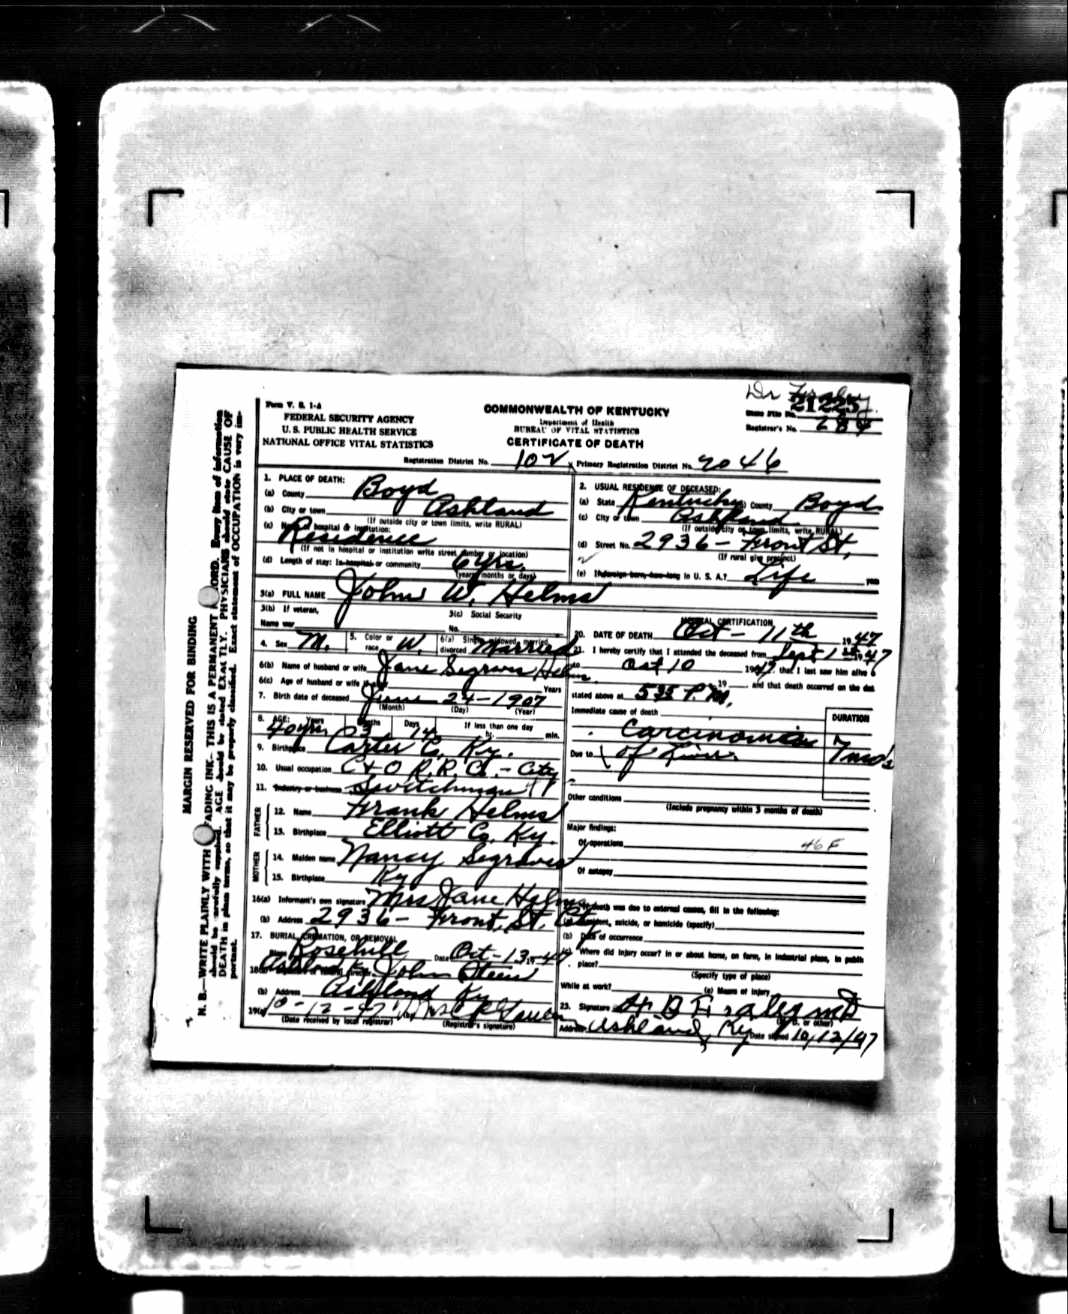 Dr
Form V. S. 1-A
FEDERAL SECURITY AGENCY
U. S. PUBLIC HEALTH SERVICE
NATIONAL OFFICE VITAL STATISTICS
COMMONWEALTH OF KENTUCKY
Department of Health
BUREAU OF VITAL STATISTICS
CERTIFICATE OF DEATH
State File No. 21225
Registrar's No. 284
Registration District No. 102 Primary Registration District No. 2046
MARGIN RESERVED FOR BINDING
1. PLACE OF DEATH:
(a) County Boyd
(b) City or town Ashland
(If outside city or town limits, write RURAL)
(c) hospital institution:
Residence
(If not in hospital or institution write street number or location)
(d) Length of stay: In hospital or community 6 yrs.
(years, months or days)
2. USUAL RESIDENCE OF DECEASED:
(a) State Kentucky County Boyd
(c) City or town Ashland
(If outside city or town limits, write RURAL)
(d) Street No. 2936 - Front St.
(If rural give precinct)
(e) If foreign born, how long in U. S. A.? Life
3(a) FULL NAME John W. Helms
3(b) If veteran,
Name war
3(c) Social Security
No.
4. Sex M. 5. Color or race W. 6(a) Single, widowed, married, divorced Married
6(b) Name of husband or wife Jane Segraves Helms
6(c) Age of husband or wife Years
7. Birth date of deceased June 24 - 1907
(Month) (Day) (Year)
8. AGE: Years Months Days If less than one day
40 yrs 3 hr. min.
9. Birthplace Carter Co. Ky.
10. Usual occupation C & O R.R. Co. - City
11. Industry or business Switchman
FATHER
12. Name Frank Helms
13. Birthplace Elliott Co. Ky.
MOTHER
14. Maiden name Nancy Segraves
15. Birthplace Ky
16(a) Informant's own signature Mrs Jane Helms
(b) Address 2936 - Front St. City
17. BURIAL, CREMATION, OR REMOVAL
Rosehill Date Oct - 13, 1947
John Steen
(b) Address Ashland Ky
19(a) 10 - 12 - 47
(Date received by local registrar) (Registrar's signature)
MEDICAL CERTIFICATION
20. DATE OF DEATH Oct - 11th 1947
21. I hereby certify that I attended the deceased from Sept 1 1947
to Oct 10 1947, that I last saw him alive
19 and that death occurred on the date
stated above at 5 35 P.M.
Immediate cause of death DURATION
Carcinoma 7 mo's
Due to of Liver
Other conditions
(Include pregnancy within 3 months of death)
Major findings:
Of operations 46F
Of autopsy
If death was due to external causes, fill in the following:
(a) Accident, suicide, or homicide (specify)
(b) Date of occurrence
(c) Where did injury occur? In or about home, on farm, in industrial place, in public
place?
(Specify type of place)
While at work? (e) Means of injury
23. Signature MD
(M. D. or other)
Address Ashland, Ky Date signed 10/12/47